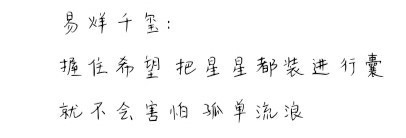 易烊千玺:
握住希望 把星星都装进行囊
就不会害怕孤单流浪